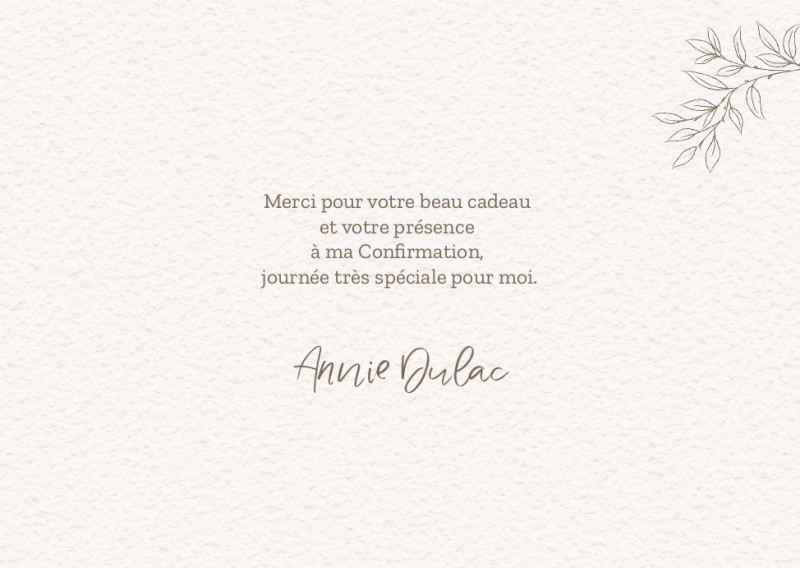 Merci pour votre beau cadeau
et votre présence
à ma Confirmation,
journée très spéciale pour moi.
Annie Dulac